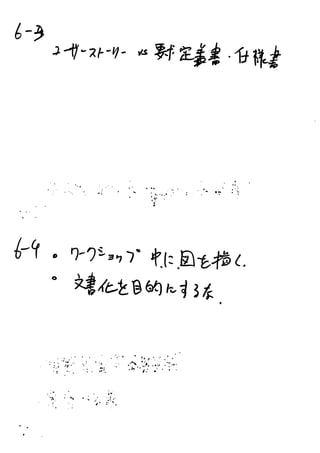 6-3
ユーザーストーリー vs 要求定義書・仕様書
6-4 ・ワークショップ中に図を描く.
・文書化を目的にするな.